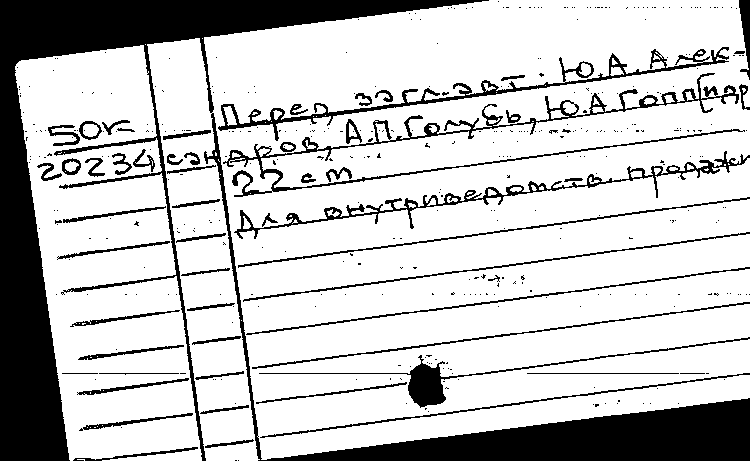 Перед загл. авт.: Ю.А. Алек-
50к
сандров, А.П. Голубь, Ю.А. Гопп[идр]
20234
22 см.
Для внутриведомств. продажи